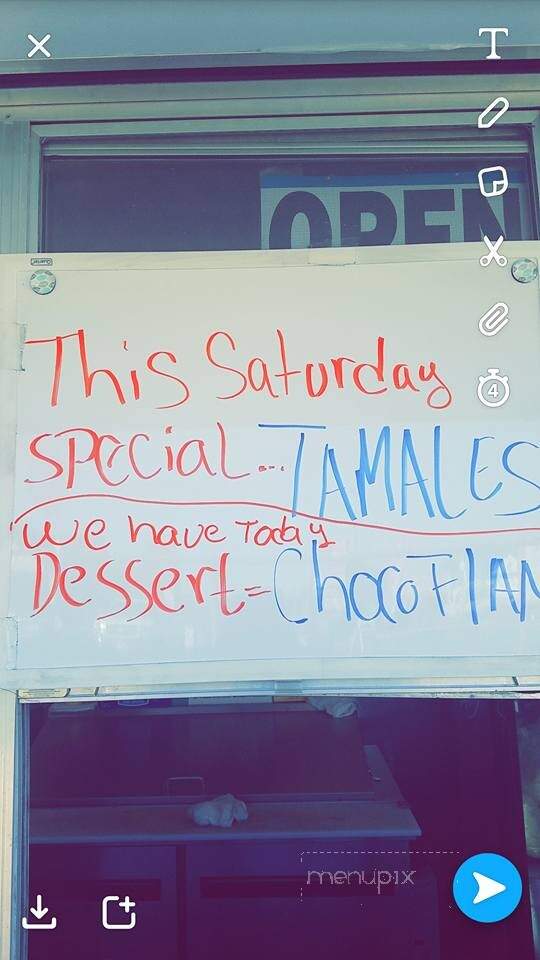 OPEN
This Saturday
Special... TAMALES
we have Today
Dessert = ChocoFlan
menupix
T
4